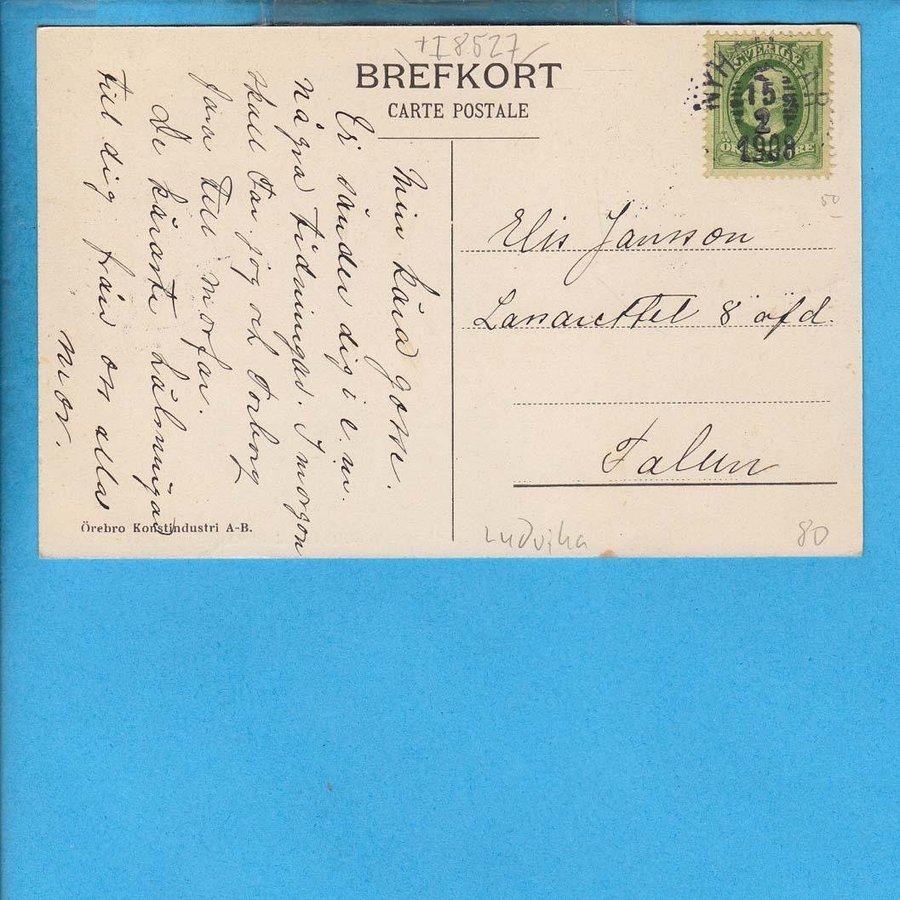 +I8527
BREFKORT
CARTE POSTALE
SVERIGE
15
2
1908
50
Min kära gosse.
sänder dig i e.m.
några tidningar. I morgon
skall far jag och Torborg
fara till morfar.
De käraste hälsningar
till dig från oss alla
Mor.
Elis Jansson
Lasarettet 8 afd
Falun
Örebro Konstindustri A-B.
Ludvika
80